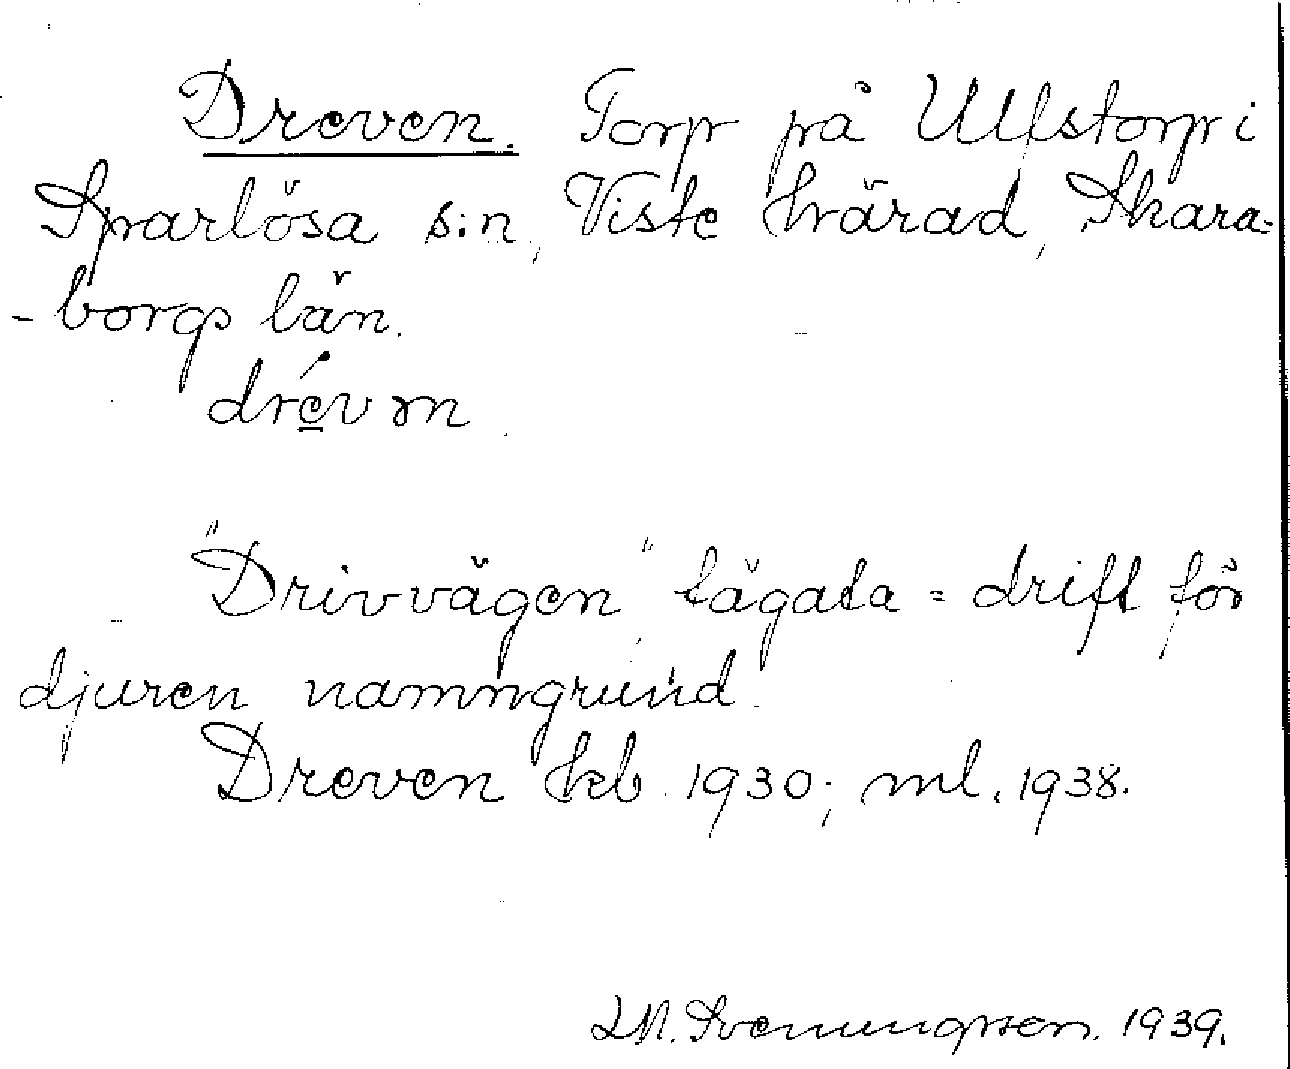 Dreven. Torp på Ulfstorp i
Sparlösa s:n, Viste härad, Skara-
-borgs län.
drévən
"Drivvägen" fägata = drift för
djuren namngrund.
Dreven kb. 1930; ml. 1938.
Svenungsson. 1939.